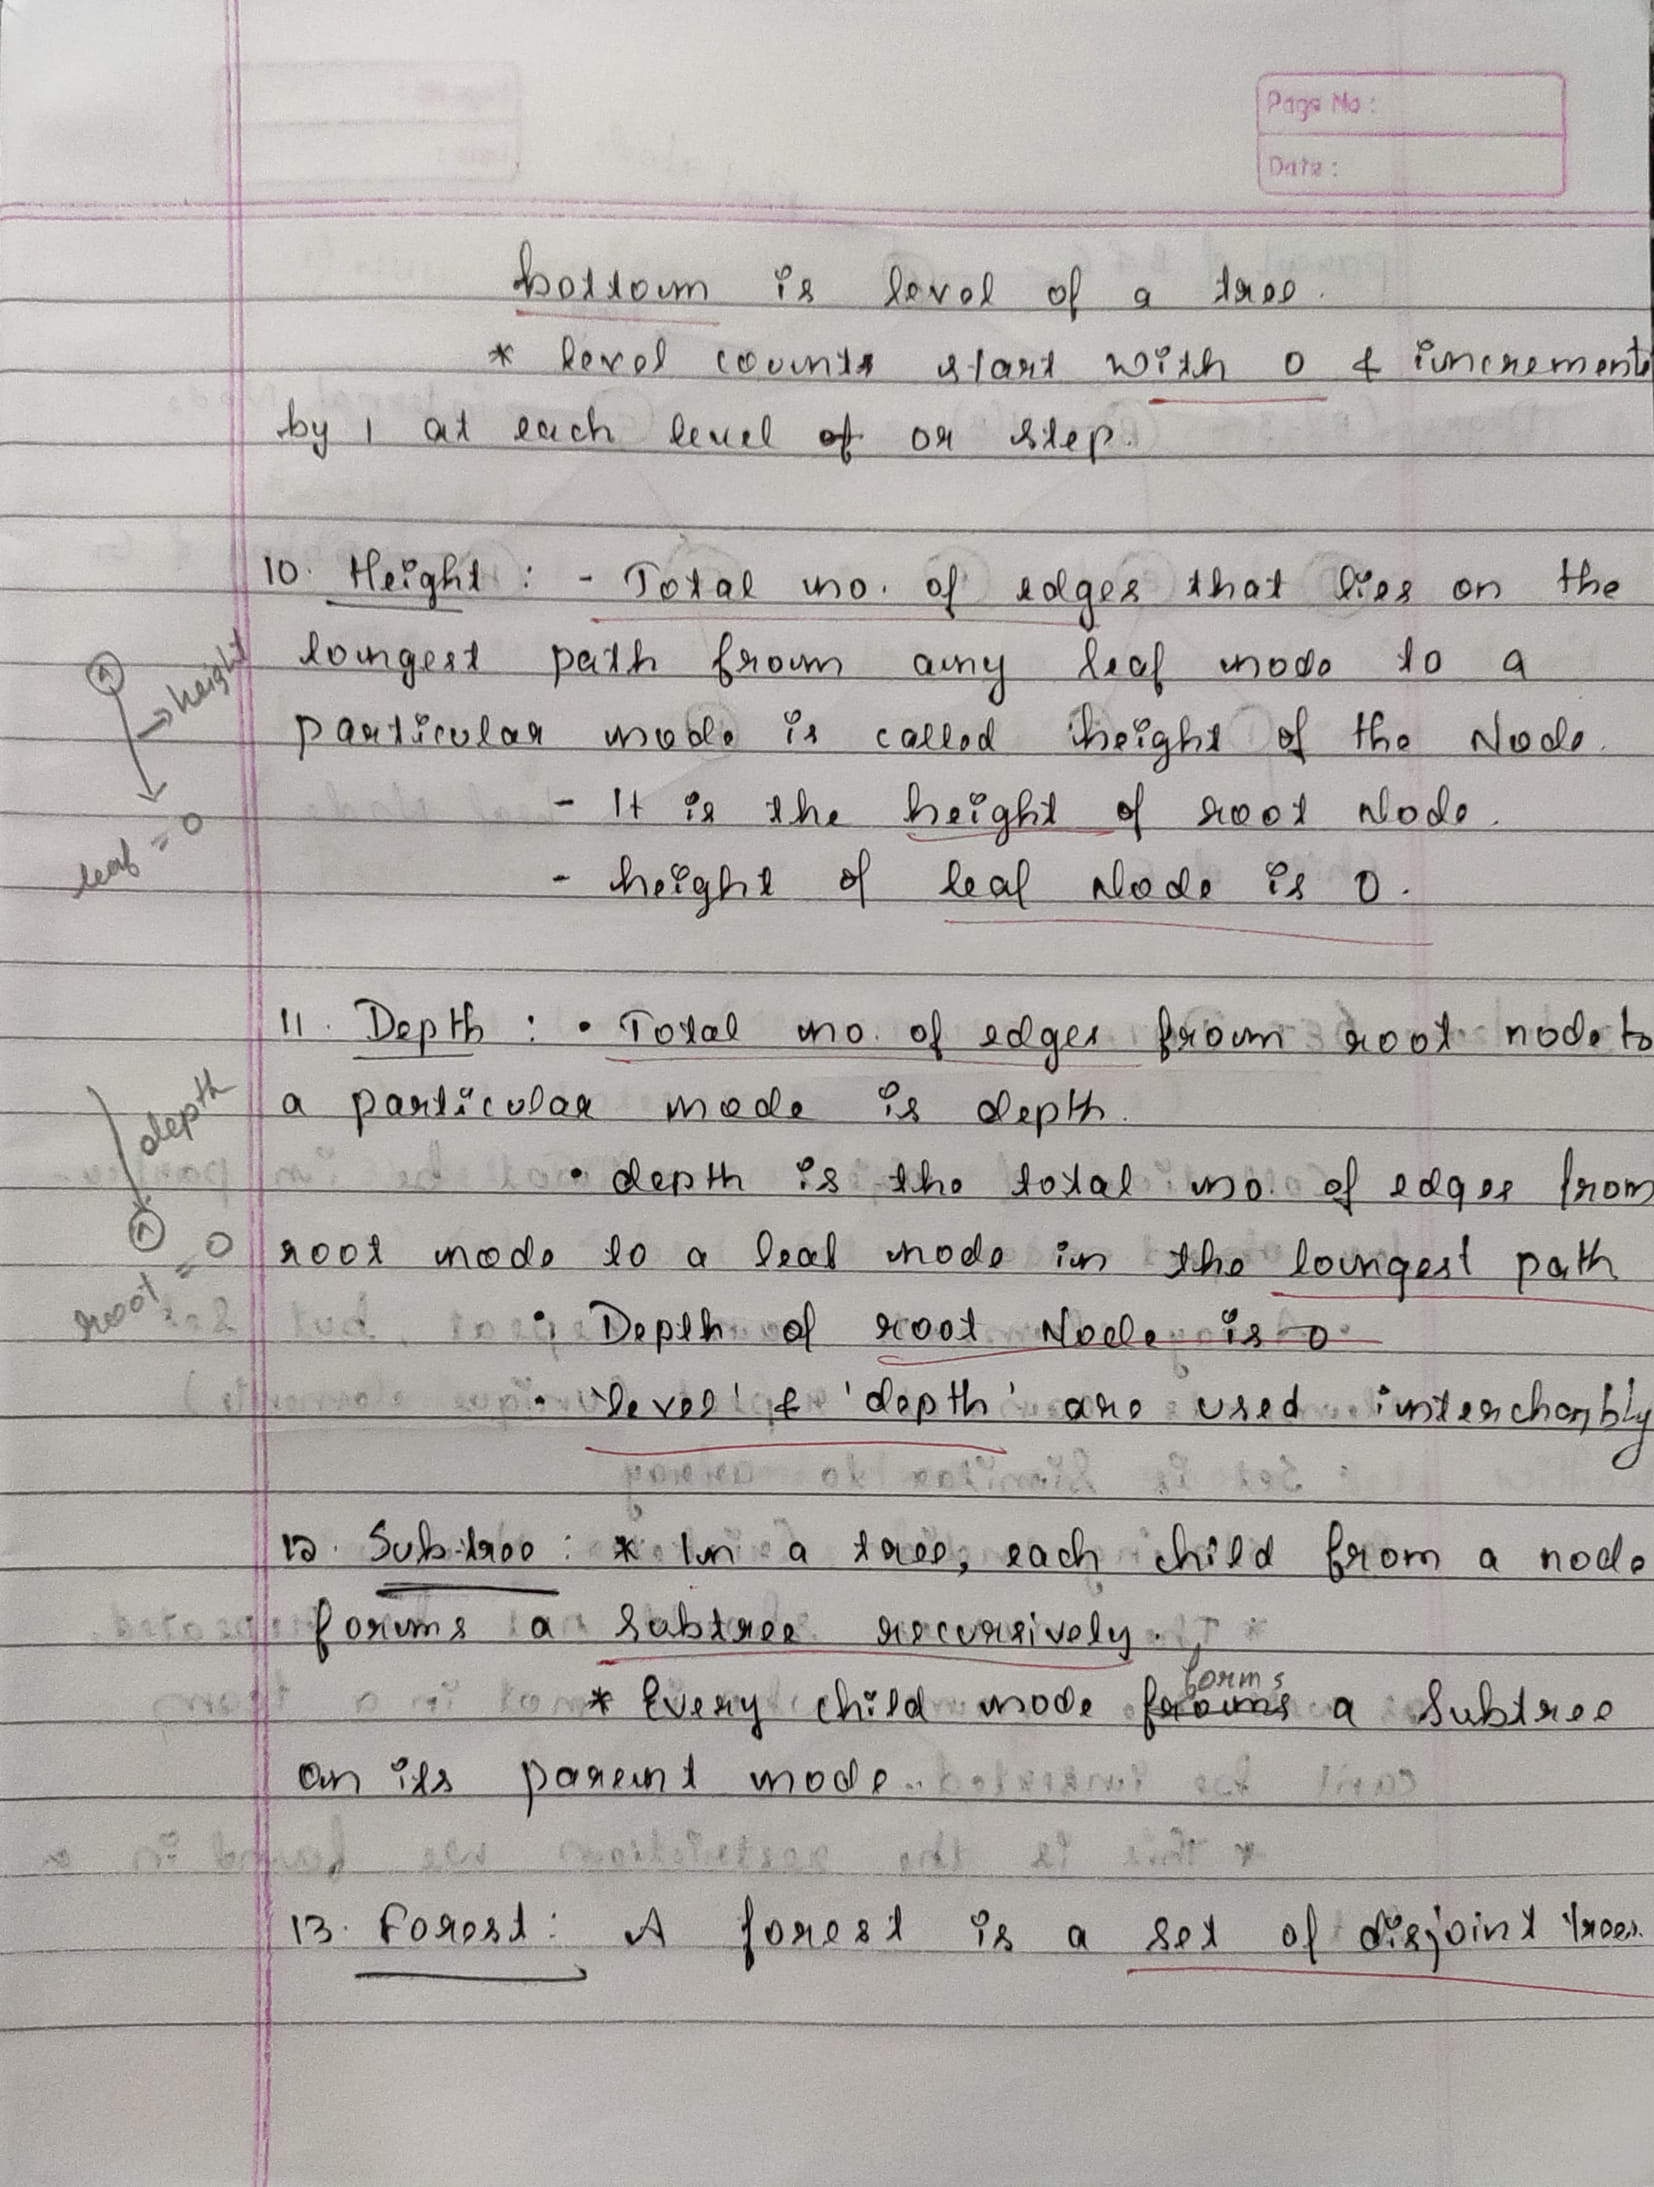 Page No :
Date :
bottom is level of a tree.
* level counts start with 0 & increments
by 1 at each level of or step.
10. Height : - Total no. of edges that lies on the
longest path from any leaf node to a
particular node is called height of the Node.
- It is the height of root Node.
- height of leaf Node is 0.
→ height
leaf = 0
11. Depth : • Total no. of edges from root node to
a particular node is depth.
• depth is the total no. of edges from
root node to a leaf node in the longest path
• Depth of root Node is 0
• 'level' & 'depth' are used interchanbly
depth
root = 0
12. Subtree : * In a tree, each child from a node
forms a subtree recursively.
* Every child node froms forms a Subtree
on its parent node.
13. Forest : A forest is a set of disjoint trees.